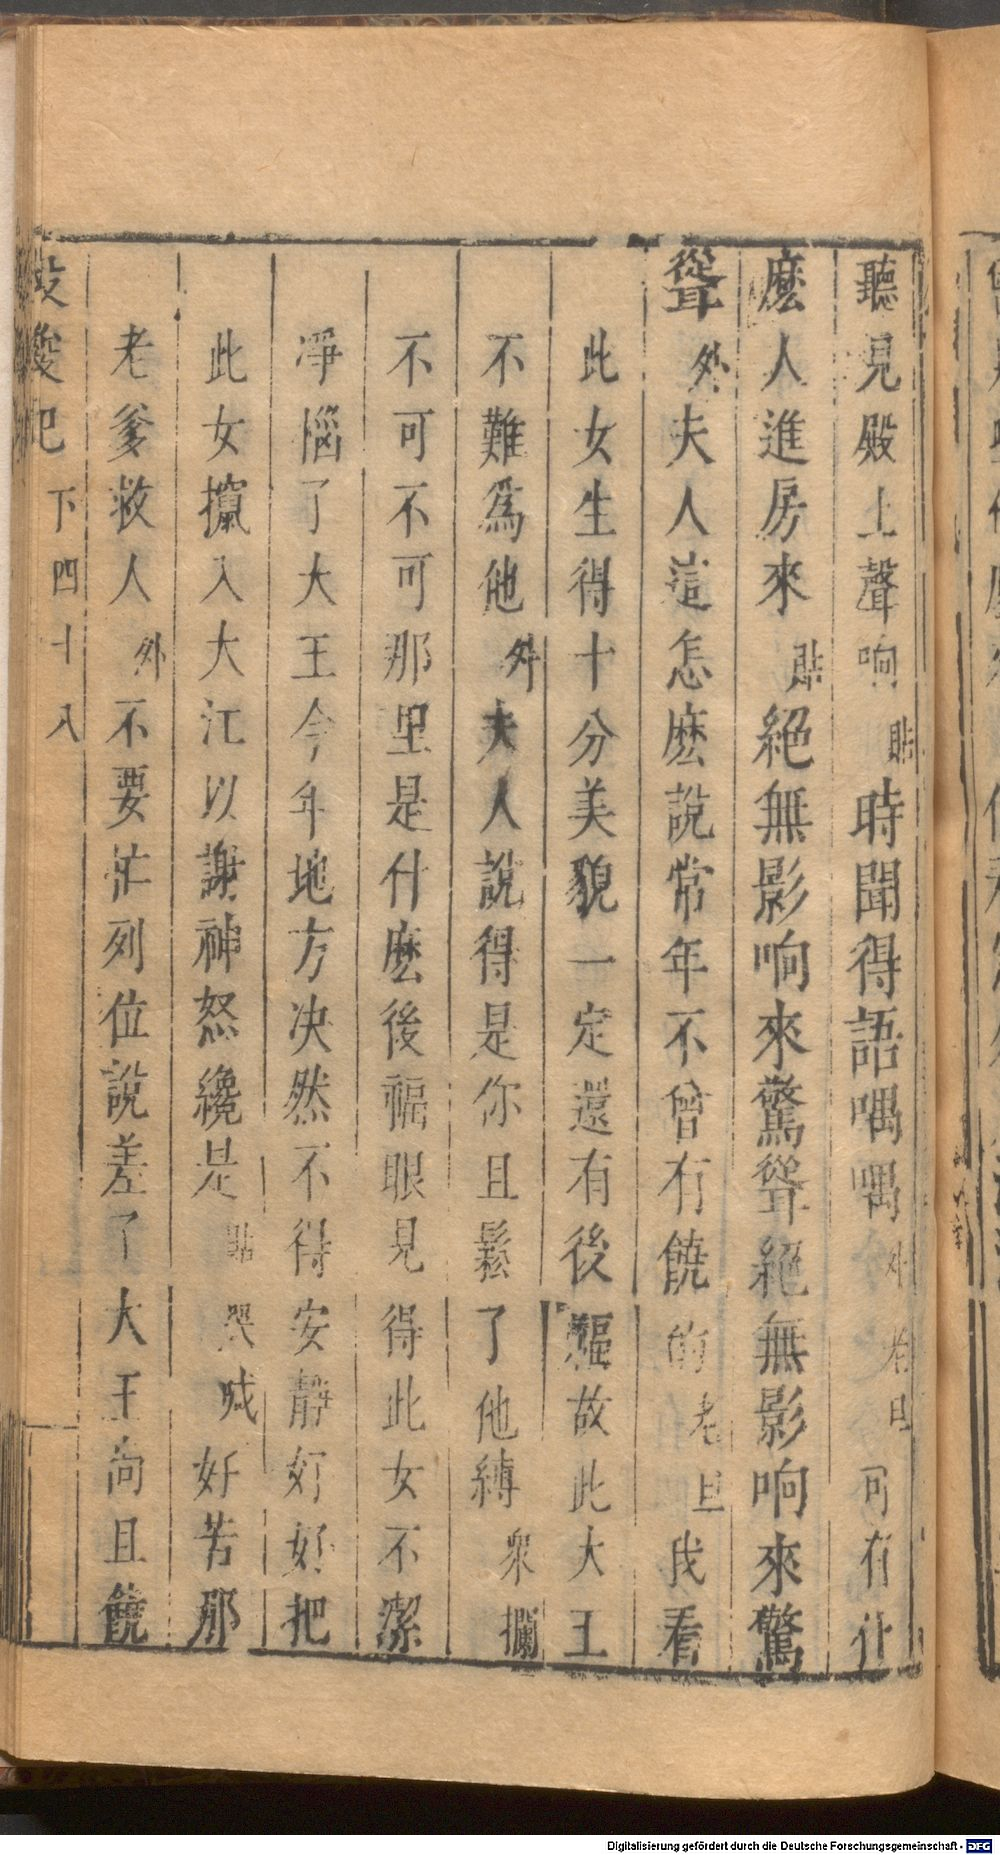 聽見殿上聲响貼時聞得語喁喁外老旦可有什
麽人進房來貼絕無影响來驚聳絕無影响來驚
聳外夫人這怎麽說常年不曾有饒的老旦我看
此女生得十分美貌一定還有後福故此大王
不難爲他外夫人說得是你且鬆了他縛衆攔
不可不可那里是什麽後福眼見得此女不潔
凈惱了大王今年地方决然不得安靜好好把
此女攛入大江以謝神怒纔是貼哭喊好苦那
老爹救人外不要忙列位說差了大王尚且饒
下四十八
Digitalisierung gefördert durch die Deutsche Forschungsgemeinschaft - DFG